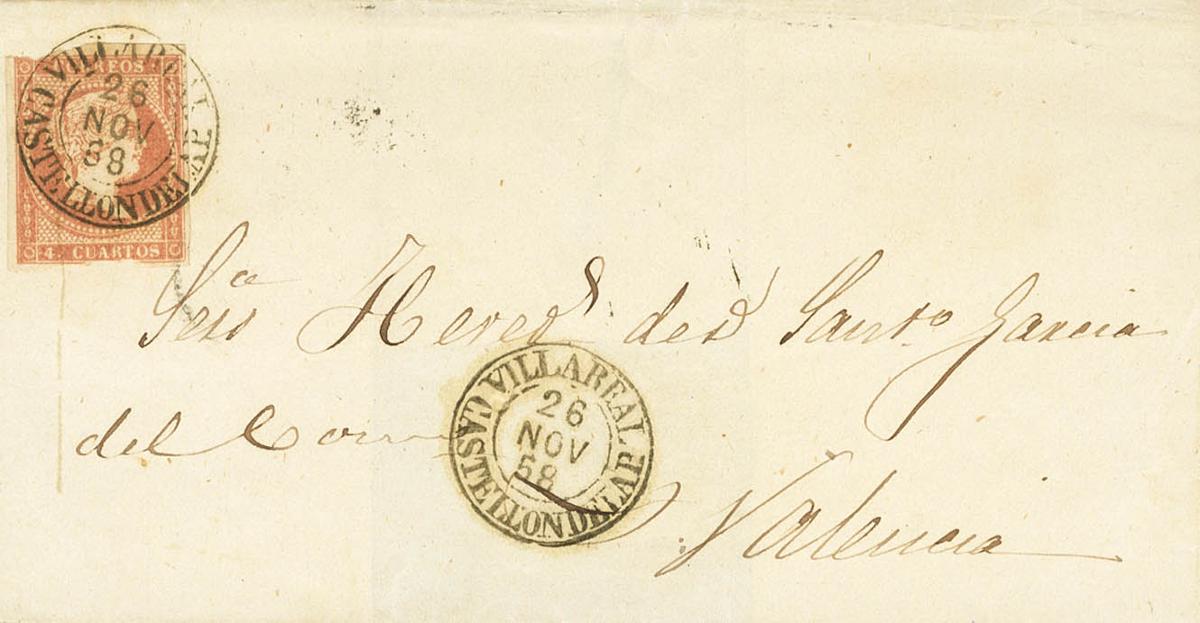 CORREOS
4 CUARTOS
VILLAREAL
26
NOV
68
CASTELLON DE LA P.
Sres Hered.s de D Santo Garcia
del
VILLAREAL
26
NOV
58
CASTELLON DE LA P.
Valencia